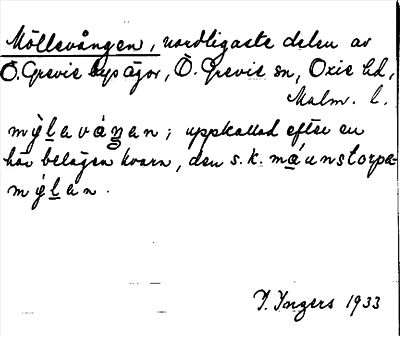 Möllevången, nordligaste delen av
Ö. Grevie bys ägor, Ö. Grevie sn, Oxie hd,
Malm. l.
mỳlavåŋan; uppkallad efter en
här belägen kvarn, den s.k. måunstorpa-
mýlan.
I. Ingers 1933